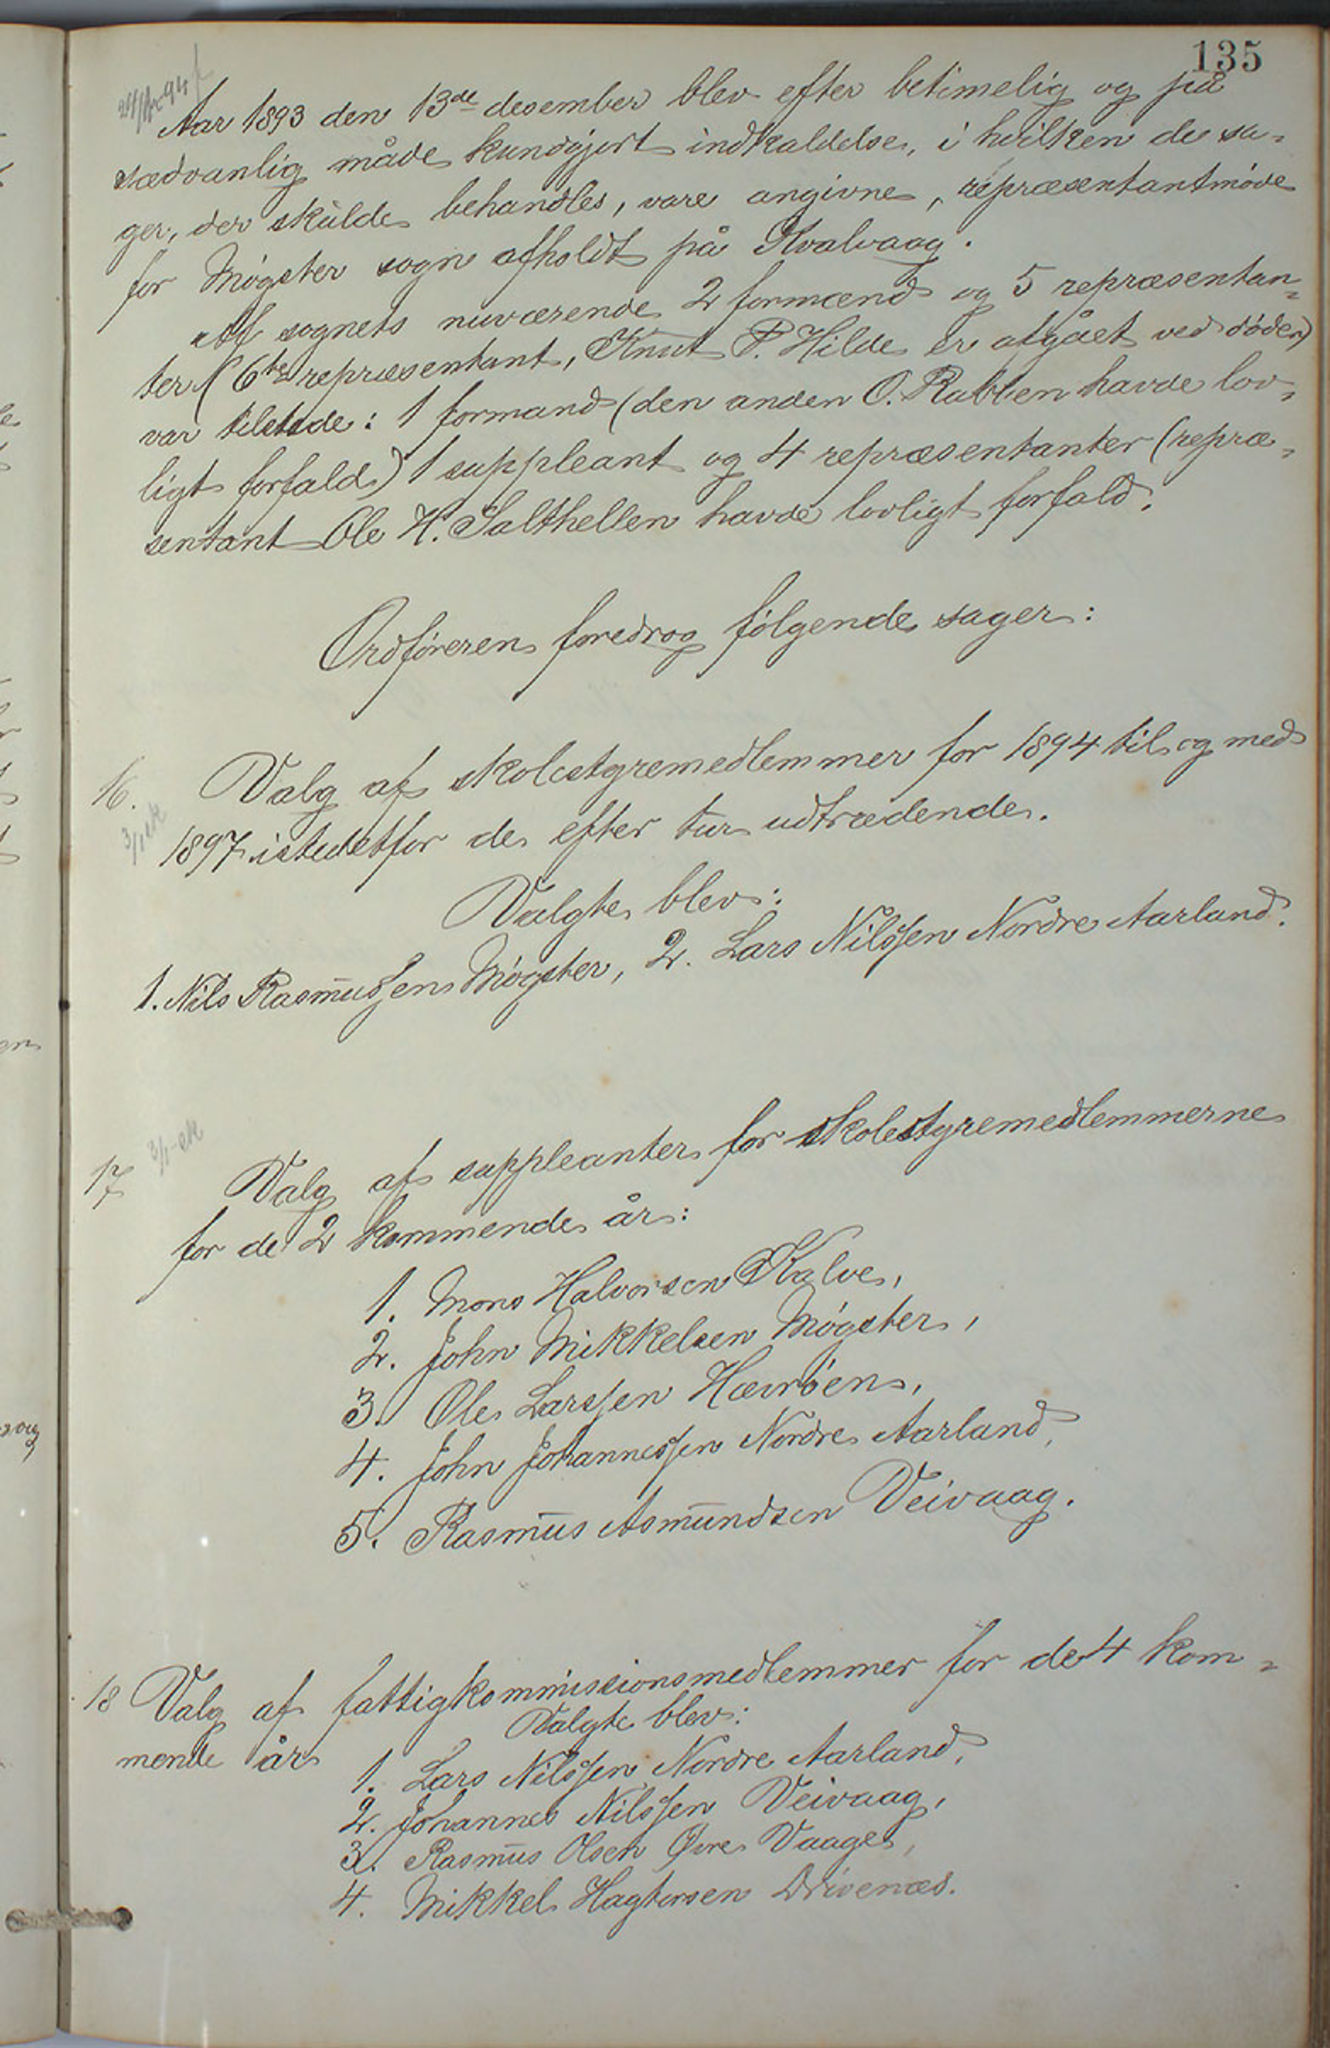 135
Aar 1893 den 13de desember blev efter betimelig og på
sædvanlig måde kundgjort indkaldelse, i hvilken de sa-
ger, der skulde behandles, vare angivne, repræsentantmøde
for Møgster sogn afholdt på Hvalvaag.
Af sognets nuværende 2 formænd og 5 repræsentan-
ter (6te repræsentant, Knut P. Hilde er afgået ved døden)
var tilstede: 1 formand (den anden O. Rabben havde lov-
ligt forfald) 1 suppleant og 4 repræsentanter (repræ-
sentant Ole H. Salthellen havde lovligt forfald.
Ordføreren foredrog følgende sager:
16. Valg af skolestyremedlemmer for 1894 til og med
1897 istedetfor de efter tur udtrædende.
Valgte blev:
1. Nils Rasmussen Møgster, 2. Lars Nilssen Nordre Aarland.
17 Valg af suppleanter for skolestyremedlemmerne
for de 2 kommende år:
1. Mons Halvorsen Kalve,
2. John Mikkelsen Møgster,
3. Ole Larssen Hævrøen,
4. John Johannessen Nordre Aarland,
5. Rasmus Asmundsen Veivaag.
18 Valg af fattigkommissionsmedlemmer for de 4 kom-
mende år Valgte blev:
1. Lars Nilssen Nordre Aarland,
2. Johannes Nilssen Veivaag,
3. Rasmus Olsen Øvre Vaage,
4. Mikkel Hagtorsen Drivenæs.